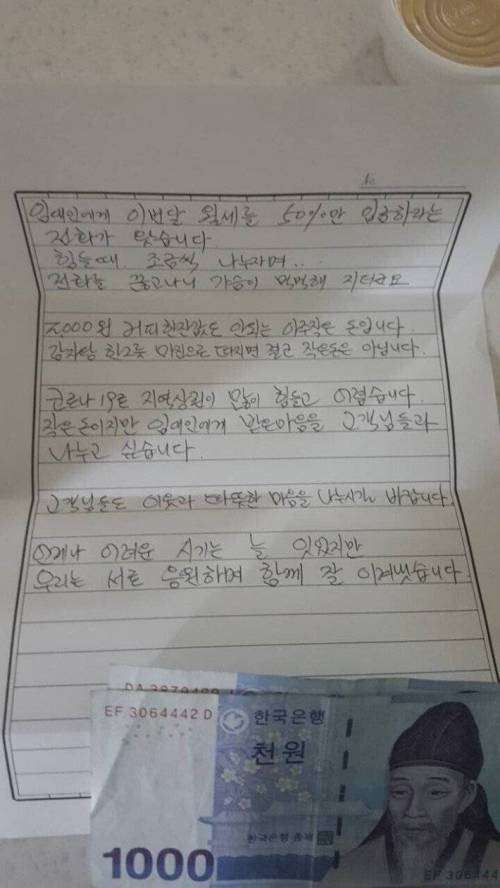 임대인에게 이번달 월세를 50%만 입금하라는
전화가 왔습니다
힘들때 조금씩 나누자며..
전화를 끊고나니 가슴이 먹먹해 지더라고요
2,000원 커피한잔값도 안되는 아주작은 돈입니다.
감자탕 한그릇 마진으로 따지면 결코 작은돈은 아닙니다.
코로나19로 지역상권이 많이 힘들고 어렵습니다.
작은 돈이지만 임대인에게 받은마음을 고객님들과
나누고 싶습니다.
고객님들도 이웃과 따뜻한 마음을 나누시길 바랍니다.
언제나 어려운 시기는 늘 있었지만
우리는 서로 응원하며 함께 잘 이겨냈습니다.
EF 3064442 D
한국은행
천원
한국은행 총재
1000